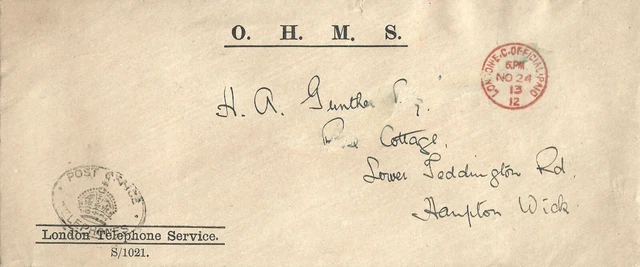 O. H. M. S.
LONDON E.C. OFFICIAL PAID
5.PM
NO 24
13
12
H. A. Gunther
Cottage,
Lower Teddington Rd.
Hampton Wick.
POST OFFICE
TELEPHONES
London Telephone Service.
S/1021.